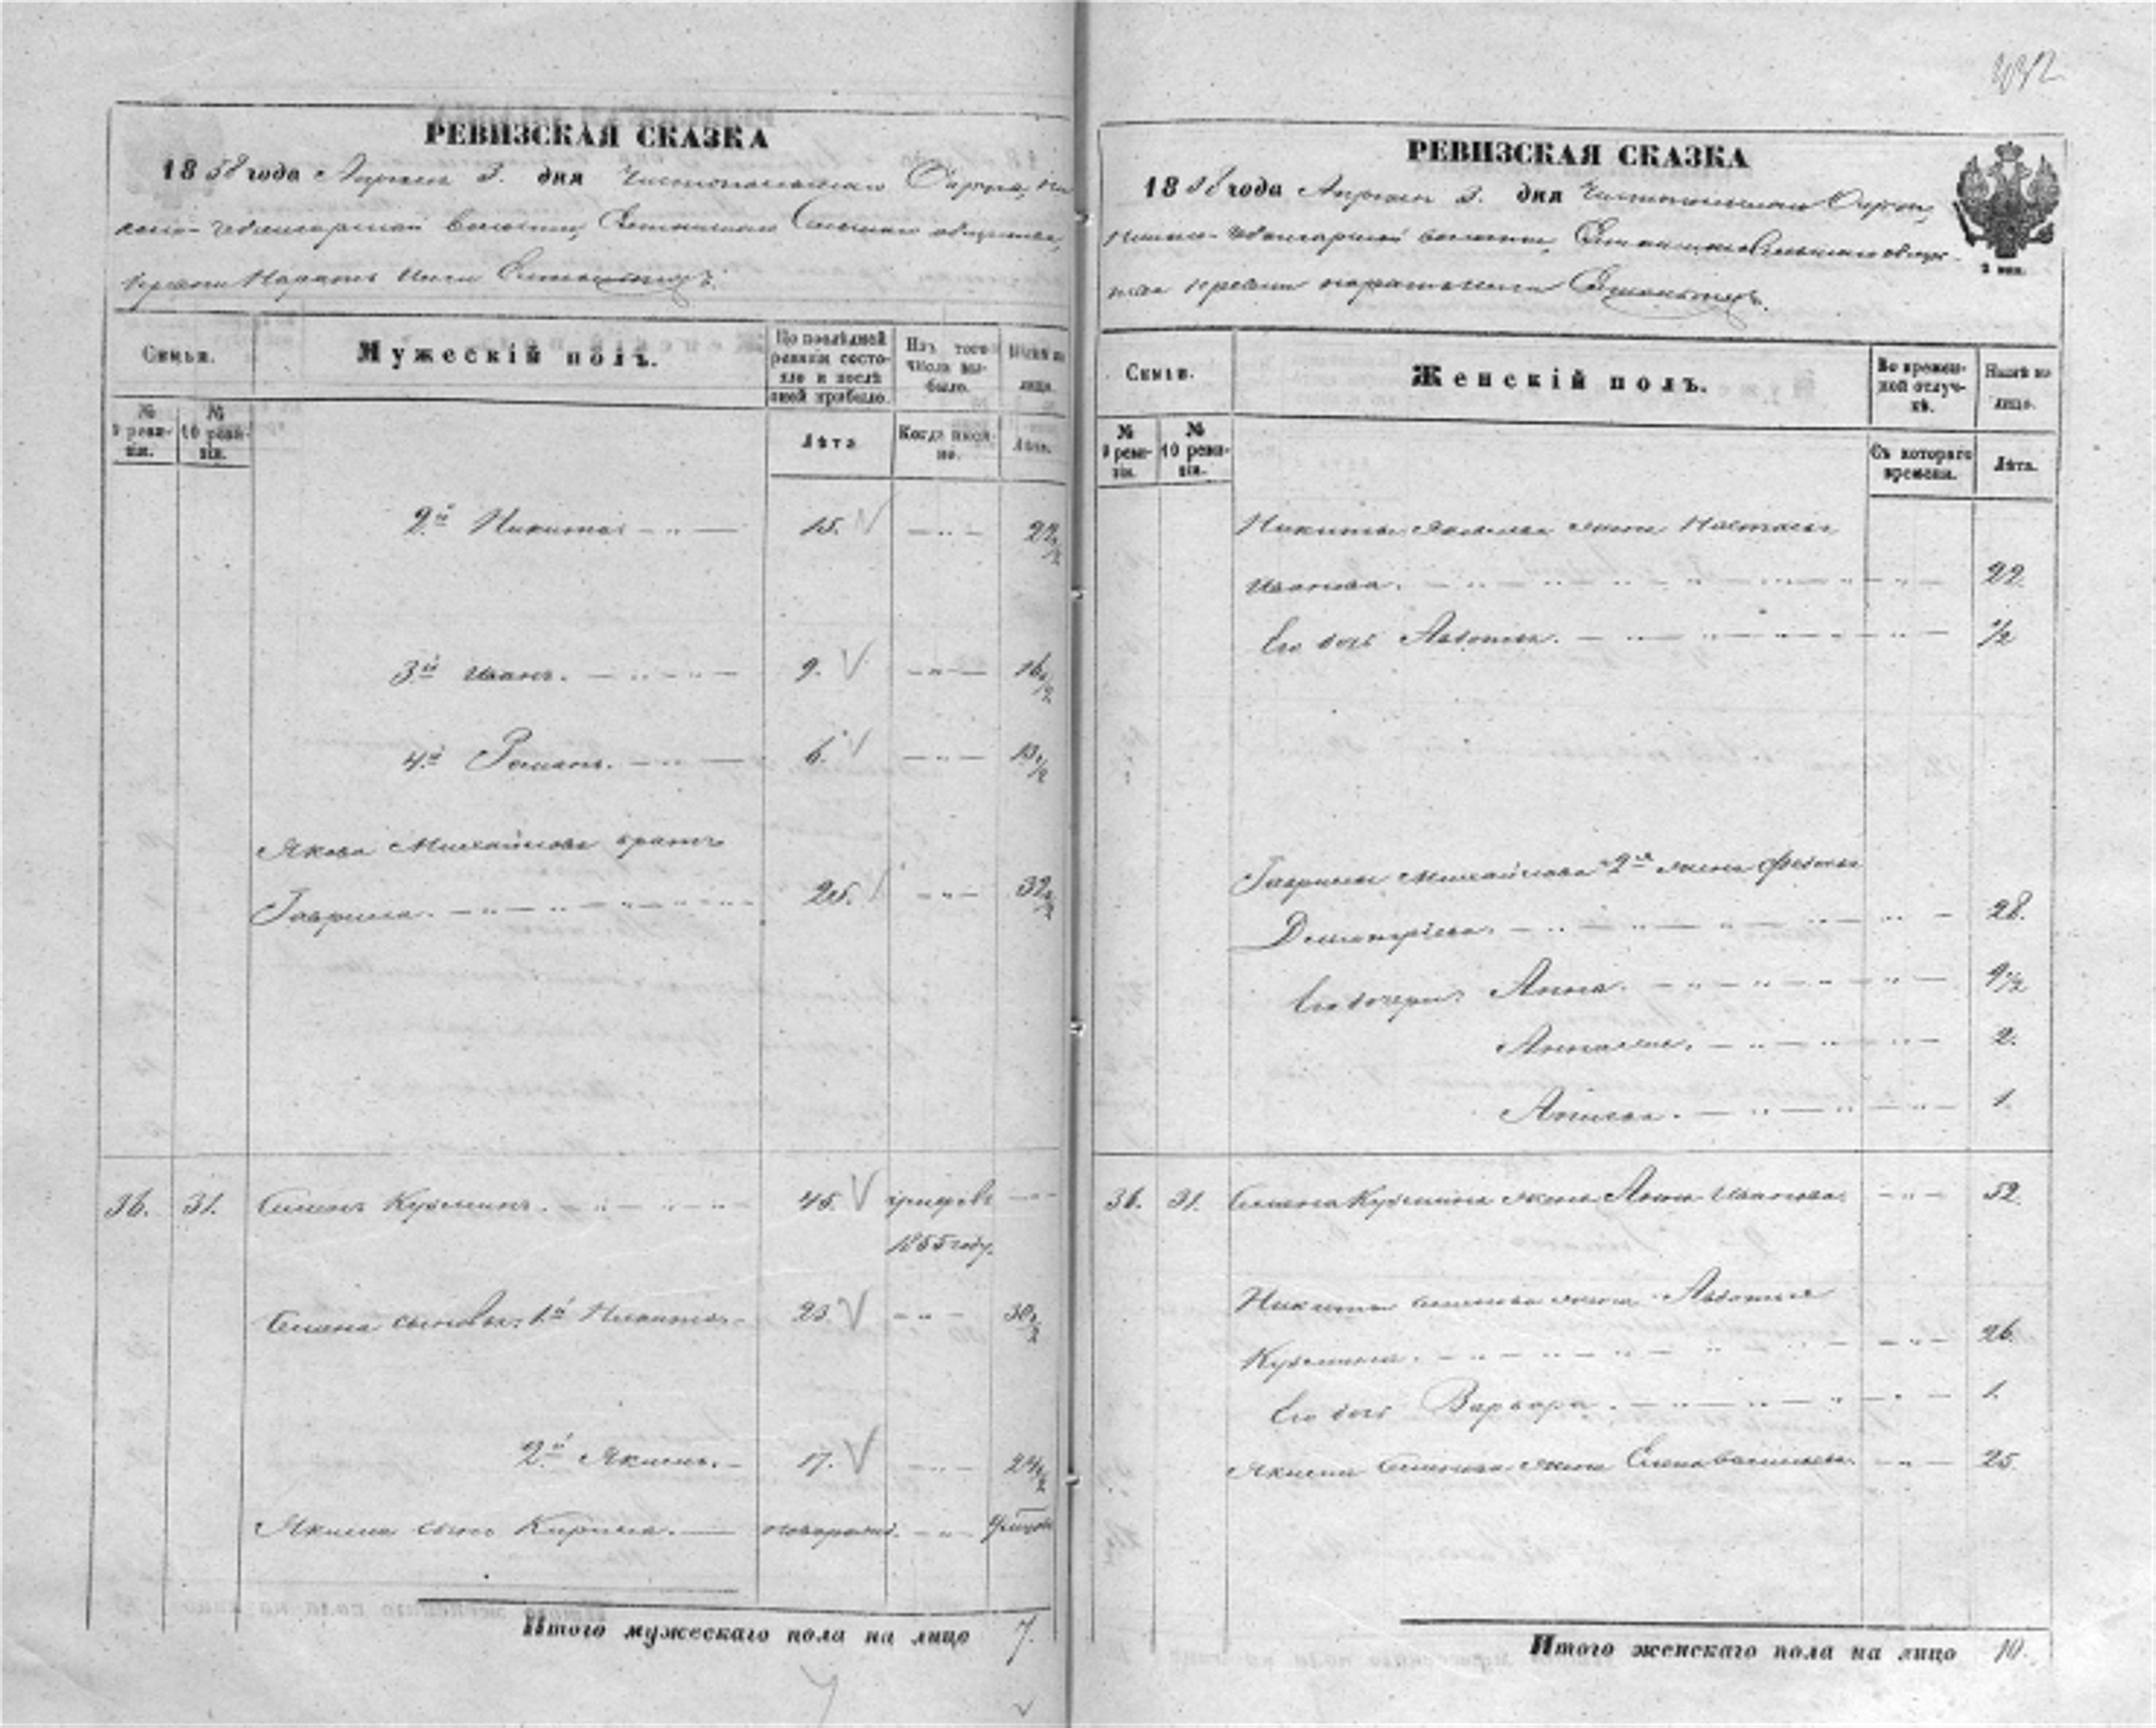 РЕВИЗСКАЯ СКАЗКА
1858 года Апреля 3. дня Чистопольского Округа,
волости, Сельского общества,
деревни
Семьи.
Мужескій полъ.
По послѣдней ревизіи состояло и послѣ оной прибыло.
Изъ того числа выбыло.
Нынѣ на лицо.
№ 9 ревизіи.
№ 10 ревизіи.
Лѣта
Когда именно.
Лѣта.
2й Никита 15. 22 1/2
3й Иванъ. 9. 16 1/2
4й Романъ. 6. 13 1/2
Якова Михайлова братъ
Гаврила. 25. 32 1/2
36. 31. Семенъ Кузьминъ. 45. умре въ
1855 году.
Семена сыновья: 1й Никита 23. 30 1/2
2й Якимъ. 17. 24 1/2
Якима сынъ Кирила. новорожд.
Итого мужескаго пола на лицо 7.
РЕВИЗСКАЯ СКАЗКА
1858 года Апреля 3. дня Чистопольского Округа,
волости,
деревни
Семьи.
Женскій полъ.
Во временной отлучкѣ.
Нынѣ на лицо.
№ 9 ревизіи.
№ 10 ревизіи.
Съ котораго времени.
Лѣта.
Никиты Яковлева жена Настасья
Иванова. 22.
Его дочь Авдотья. 1/2
Гаврилы Михайлова 2я жена Федосья
Дмитріева. 28.
Его дочери: Анна. 9 1/2
2.
Анисья. 1.
36. 31. Семена Кузьмина жена Анна Иванова 52.
Никиты Семенова жена Авдотья
Кузьмина. 26.
Его дочь Варвара. 1.
Якима Семенова жена Елена Васильева. 25.
Итого женскаго пола на лицо 10.